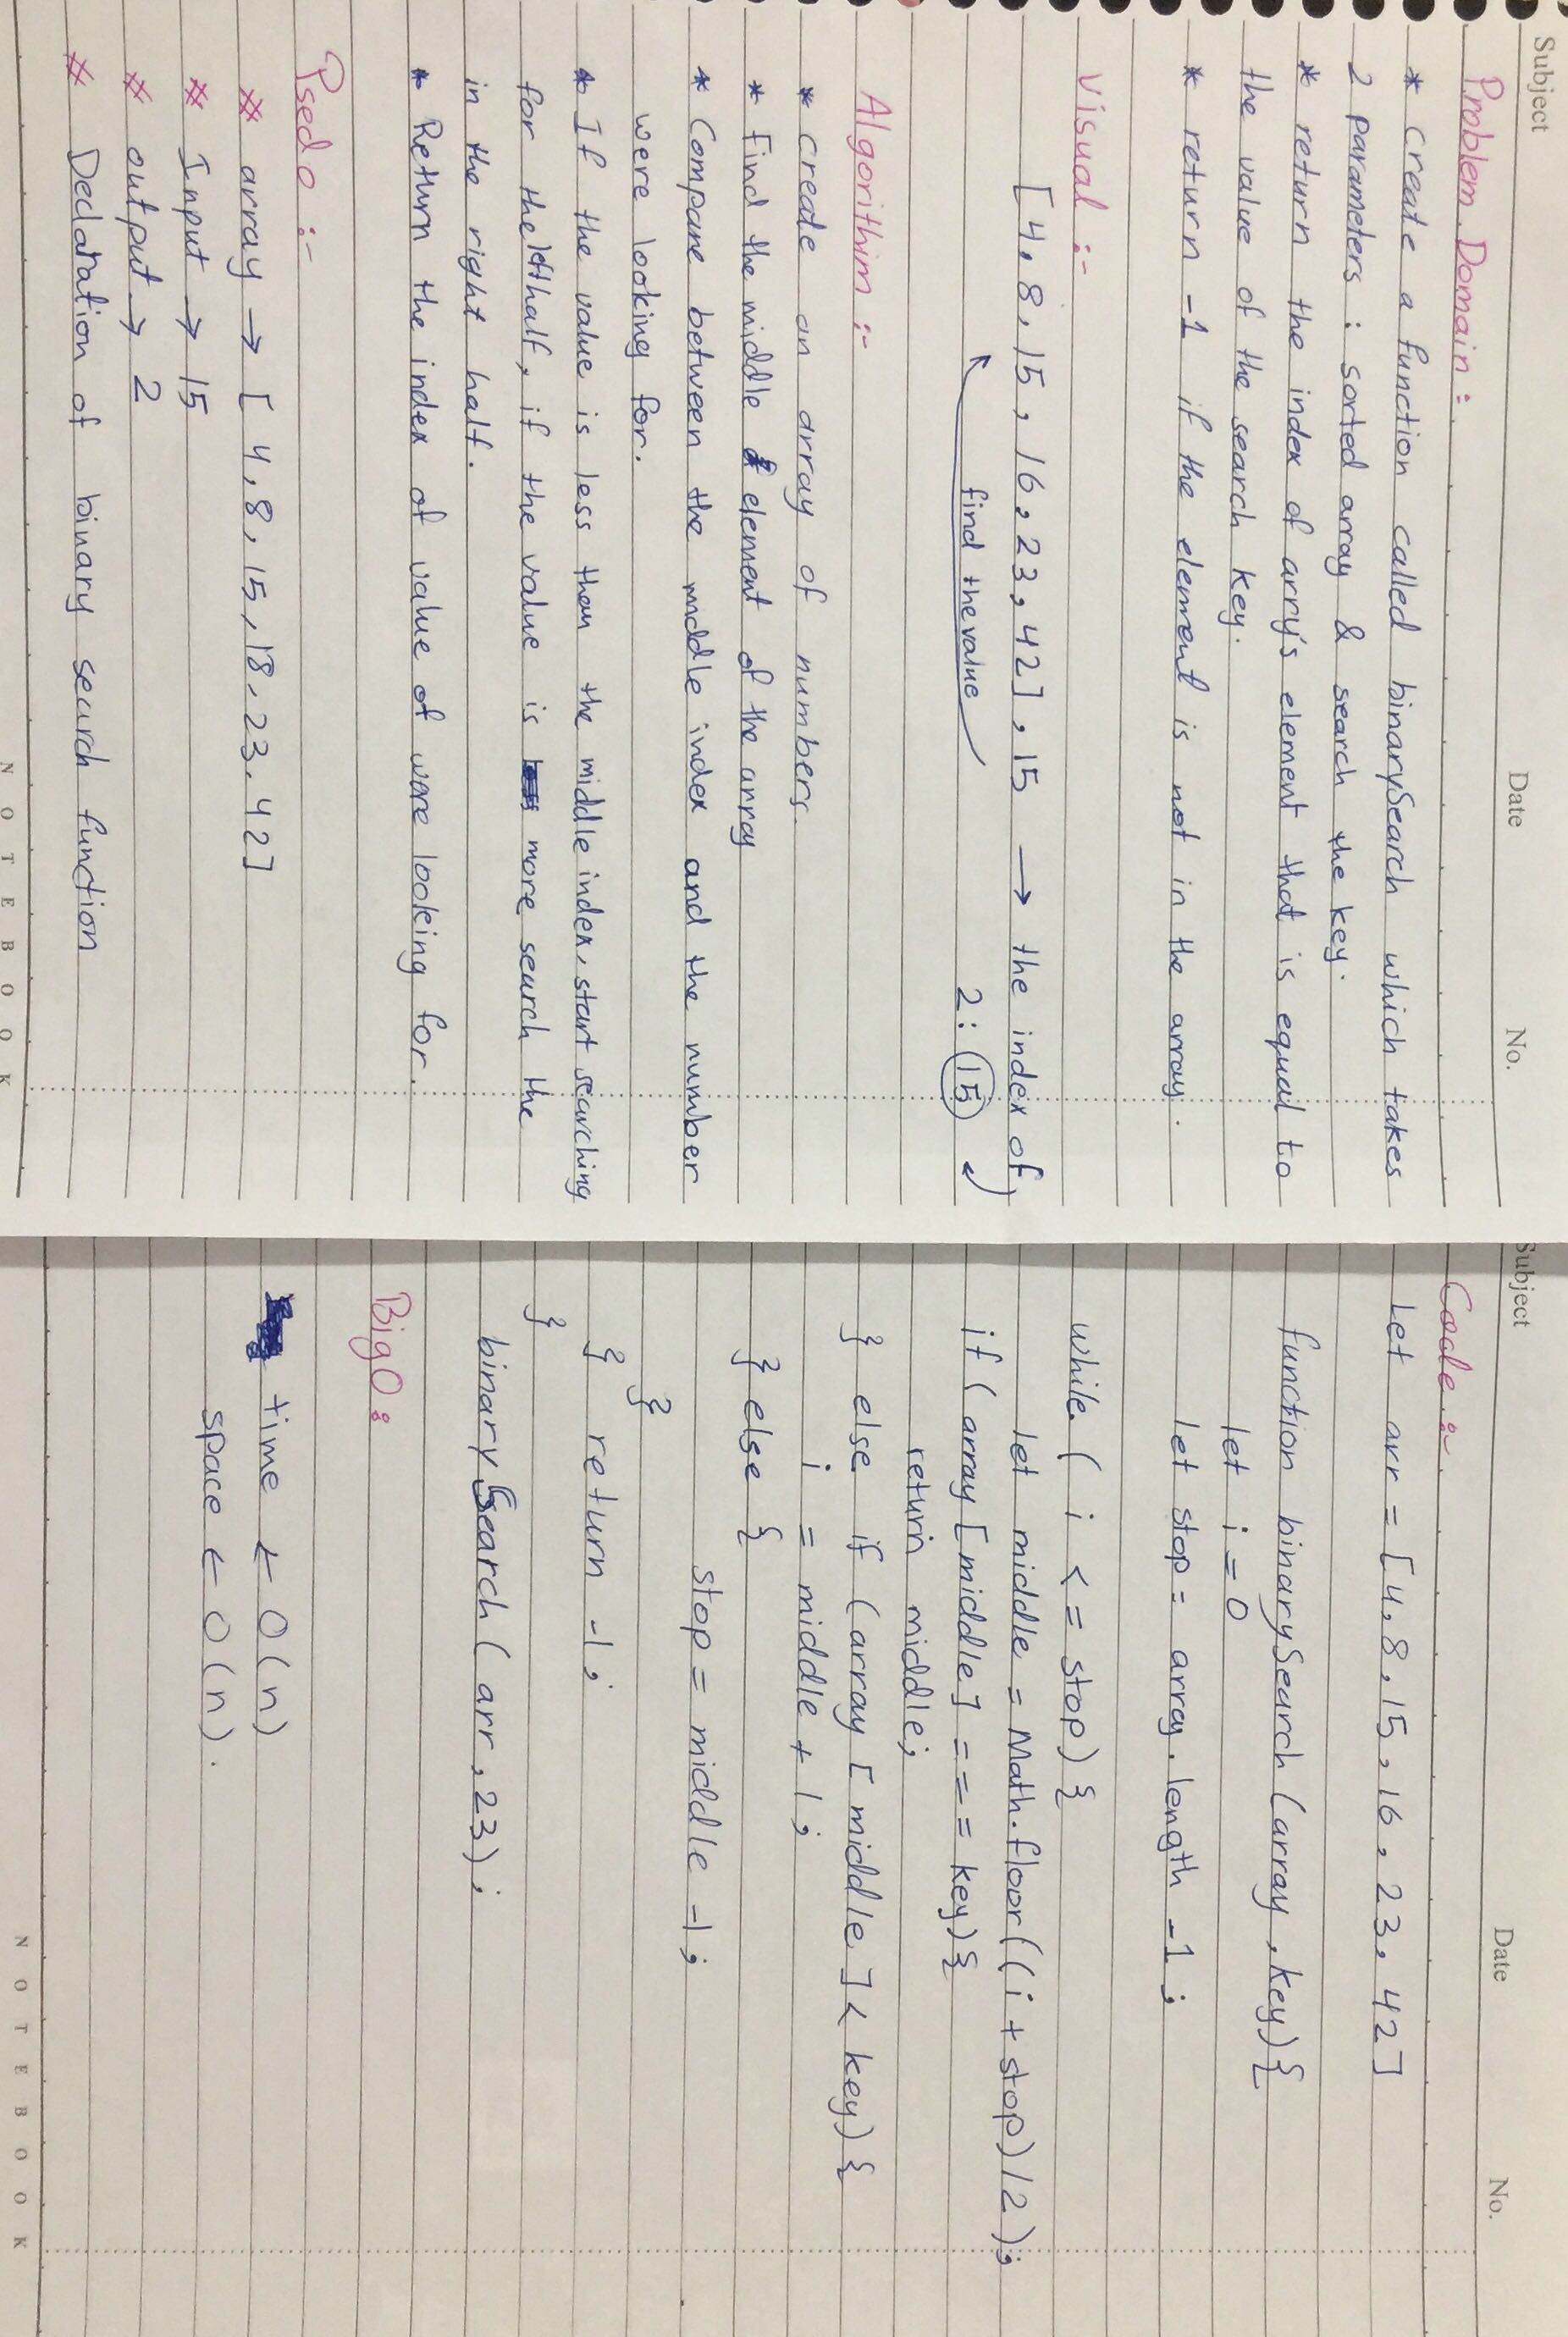 Subject
Date No.
Problem Domain :
* create a function called binarySearch which takes
2 parameters : sorted array & search the key.
* return the index of arry's element that is equal to
the value of the search key.
* return -1 if the element is not in the array.
Visual :-
[4, 8, 15, 16, 23, 42], 15 → the index of
find the value 2: 15
Algorithim :-
* create an array of numbers.
* Find the middle element of the array
* Compare between the middle index and the number
were looking for.
* If the value is less than the middle index, start searching
for the left half, if the value is more search the
in the right half.
* Return the index of value of were looking for.
Psedo :-
# array → [4, 8, 15, 18, 23, 42]
# Input → 15
# output → 2
# Declaration of binary search function
NOTEBOOK
Subject
Date No.
Code :-
Let arr = [4, 8, 15, 16, 23, 42]
function binarySearch (array, key) {
let i = 0
let stop = array.length -1 ;
while ( i <= stop) {
let middle = Math.floor((i + stop) / 2);
if ( array [middle] === key) {
return middle;
} else if (array [ middle ] < key) {
i = middle + 1 ;
} else {
stop = middle -1 ;
}
} return -1 ;
}
binary Search ( arr, 23) ;
BigO :
time ← O(n)
space ← O(n).
NOTEBOOK